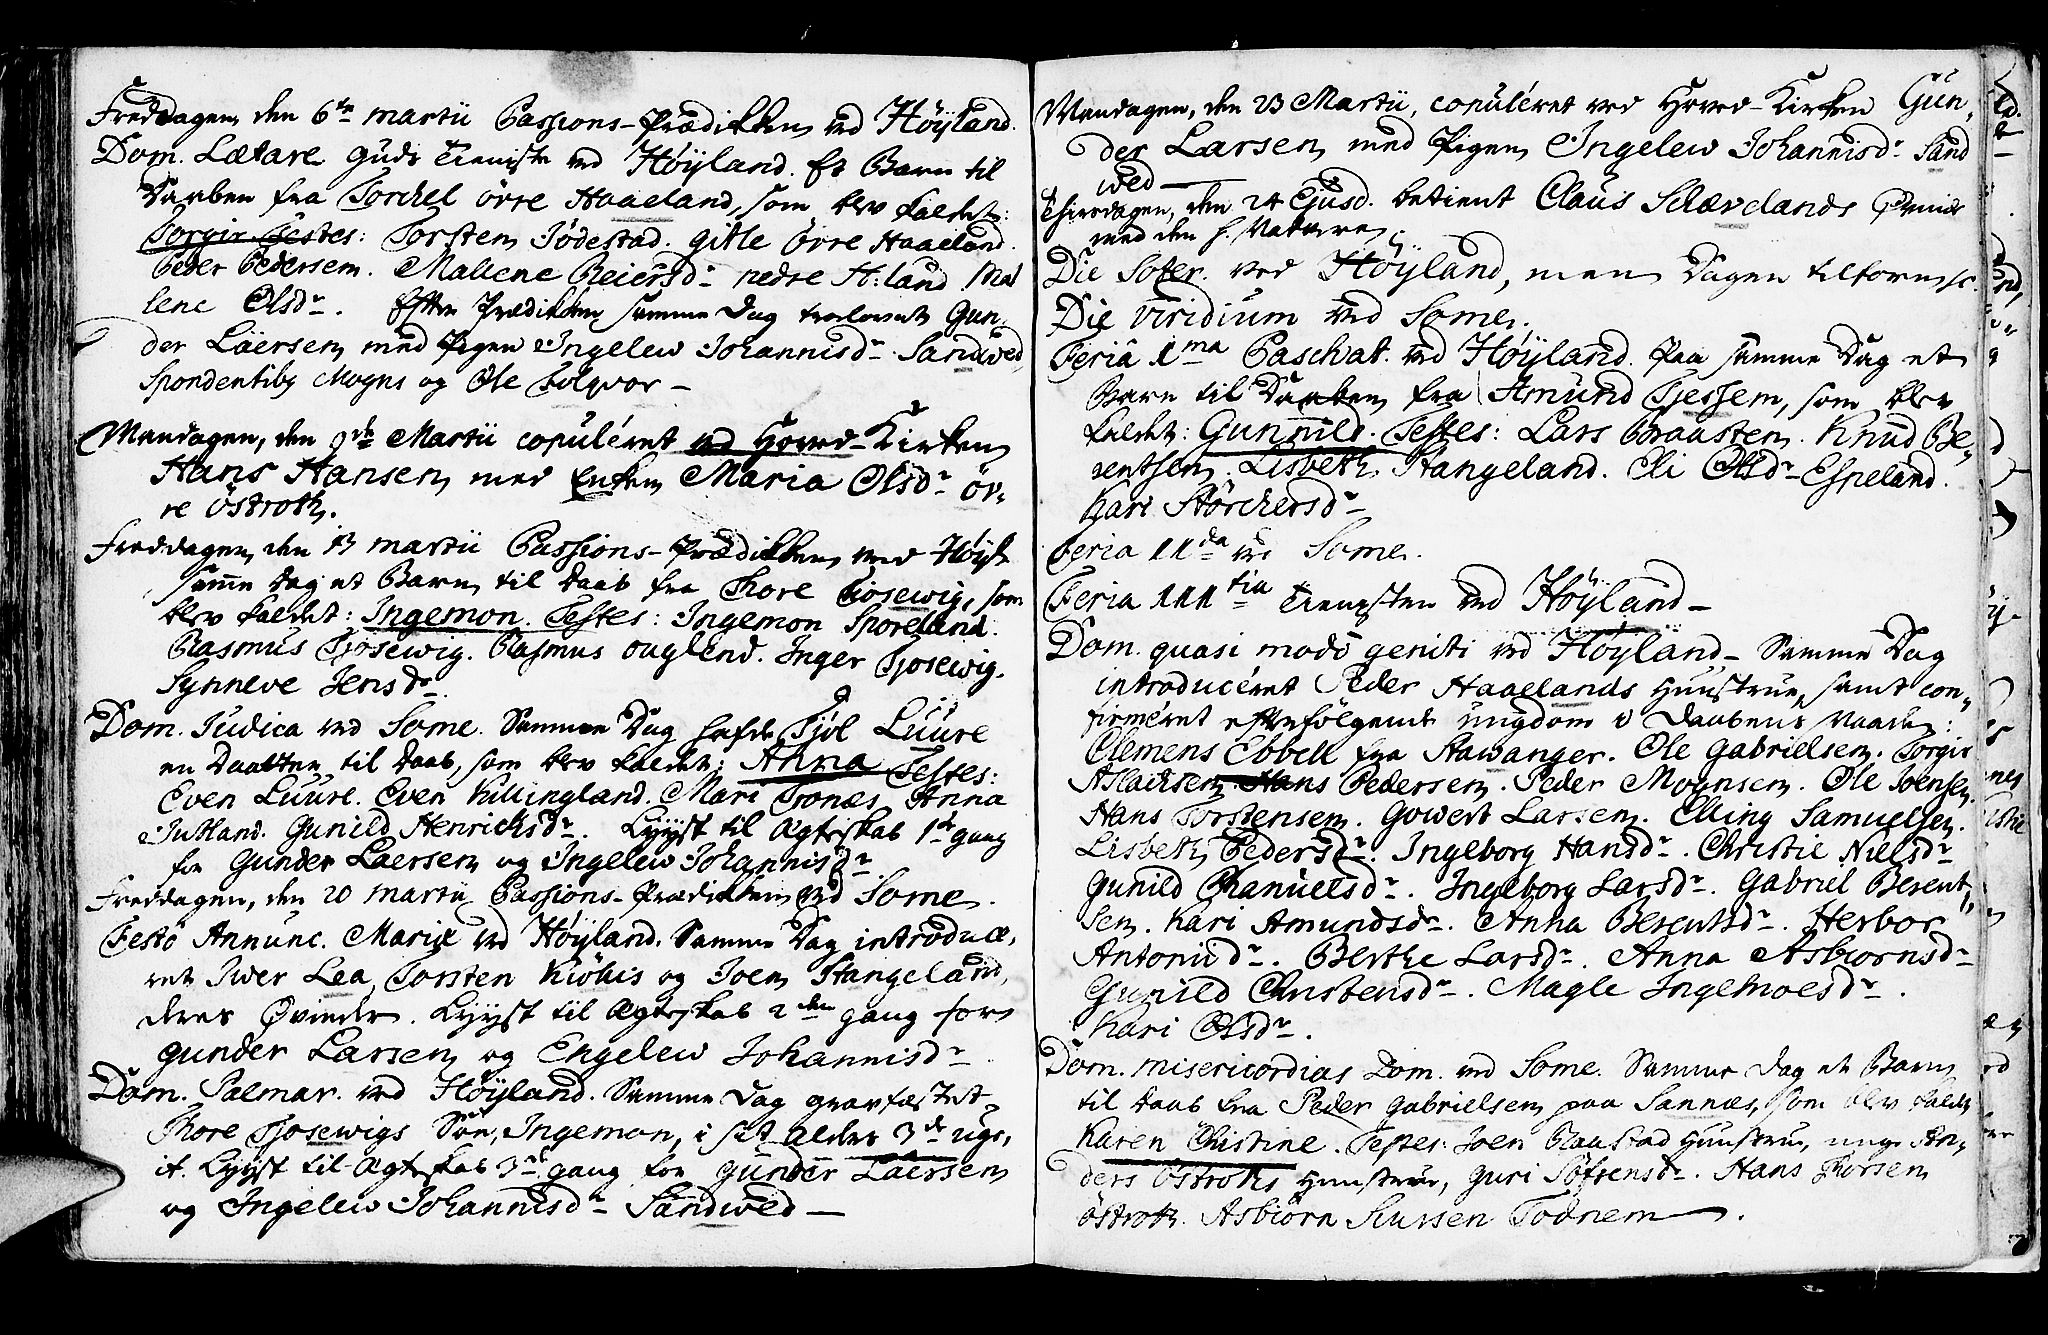 Fredagen den 6te Martii Passions-Prædikken ved Höÿland.
Dom. Lætare Guds Tieniste ved Höÿland. Et Barn til
Daaben fra Torchel övre Haaeland, som blev kaldet:
Torgir Testes: Torsten Jödestad. Gitle Övre Haaeland.
Peder Pedersem. Mallene Reiersdr nedre H:land Ma
lene Olsdr. Efter Prædikken samme Dag trolovet Gun,
der Läersen med Pigen Ingelew Johannisdr Sandwed,
Spondentibg Mogns og Ole Folqvor –
Mandagen, den 9de Martii copuléret ved Hoved-Kirken
Hans Hansen med Enken Maria Olsdr öv,
re Östroth.
Fredagen den 13 Martii Passions-Prædikken ved Höÿl:
samme Dag et Barn til Daab fra Thore Tiosewig, som
blev kaldet: Ingemon. Testes: Ingemon Sporeland.
Rasmus Tjosewig. Rasmus Auglend. Inger Tjosewig.
Synneve Jensdr.
Dom. Judica ved Some. Samme Dag hafde Tjöl Luure
en Daatter til Daab, som blev kaldet: Anna Testes:
Even Luure. Even Killingland. Mari Tronæs Anna
Jutland. Gunild Henrichsdr. Lyyst til Ægteskab 1te gang
for Gunder Laersen og Ingelew Johannisdr
Fredagen, den 20 Martii Passions-Prædikken ved Some.
Festo Annunc. Mariæ ved Höÿland. Samme Dag introduce,
ret Iwer Lea, Torsten Kiöhis og Joen Stangeland,
deres Qvinder. Lyyst til Ægteskab 2den gang for
Gunder Larsen og Engelew Johannisdr
Dom. Palmar. ved Höÿland. Samme Dag gravfæstet
Thore Tjosewigs Sön, Ingemon, i sit alders 3de uge,
it. Lyyst til Ægteskab 3de gang for Gunder Laersen
og Ingelew Johannisdr Sandwed –
Mandagen, den 23 Martii, copuléret ved Hoved-Kirken Gun,
der Larsen med Pigen Ingelew Johannisdr Sand
wed –
Tiirsdagen, den 24 Ejusd. betient Claus Skævelands Qvinde
med den h. Nadvere.
Die Jofer. ved Höÿland, men Dagen tilforn sc.
Die Viridium ved Some.
Feria 1ma Paschat. ved Höÿland. Paa samme Dag et
Barn til Daaben fra Amund Tjessem, som blev
kaldet: Gunnild. Testes: Lars Braasten. Knud Be,
rentsen. Lisbeth Stangeland. Eli Olsdr Espeland.
Kari Störchersdr
Feria IIda ved Some.
Feria IIItia Tienisten ved Höÿland –
Dom. quasi modo geniti ved Höÿland – Samme Dag
introducéret Peder Haaelands Huustrue, samt con,
firméret efterfölgende ungdom i Daabens Naade:
Clemens Ebbell fra Stawanger. Ole Gabrielsen. Torgir
Aslachsen. Hans Pedersen. Peder Mognsen. Ole Ivensen.
Hans Torstensen. Gowert Larsen. Elling Samuelsen.
Lisbeth Pedersdr. Ingeborg Hansdr. Christie Nielsdr
Gunild Chanuelsdr. Ingeborg Larsdr. Gabriel Berent,
sen. Kari Amundsdr. Anna Berentsdr. Herbor
Antonisdr. Berthe Larsdr. Anna Asbiornsdr
Gunild Christensdr. Magle Ingelwoesdr.
Kari Olsdr.
Dom. Misericordias Dom. ved Some. Samme Dag et Barn
til Daab fra Peder Gabrielsen paa Sannæs, som blev kaldt
Karen Christine. Testes: Joen Raastad Huustrue, unge An,
ders Östroths Huustrue, Guri Söfrensdr. Hans Thorsen
Östroth. Asbiörn Kurssen Todnem.